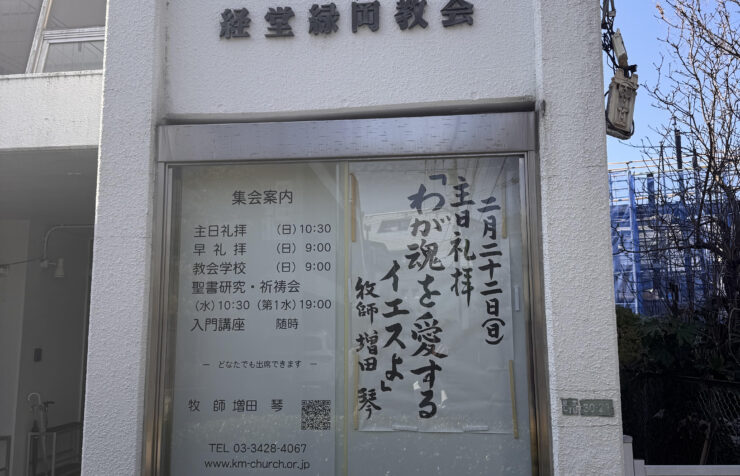 経堂緑岡教会
集会案内
主日礼拝 (日) 10:30
早礼拝 (日) 9:00
教会学校 (日) 9:00
聖書研究・祈祷会
(水) 10:30 (第1水) 19:00
入門講座 随時
― どなたでも出席できます ―
牧師 増田 琴
TEL 03-3428-4067
www.km-church.or.jp
二月二十二日(日)
主日礼拝
「わが魂を愛する
イエスよ」
牧師 増田 琴